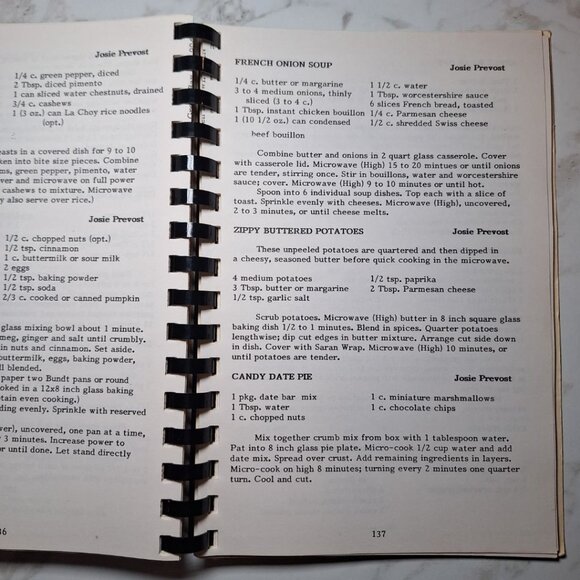 Josie Prevost
1/4 c. green pepper, diced
2 Tbsp. diced pimento
1 can sliced water chestnuts, drained
3/4 c. cashews
1 (3 oz.) can La Choy rice noodles
(opt.)
easts in a covered dish for 9 to 10
ken into bite size pieces. Combine
ms, green pepper, pimento, water
over and microwave on full power
cashews to mixture. Microwave
y also serve over rice.)
Josie Prevost
1/2 c. chopped nuts (opt.)
1/2 tsp. cinnamon
1 c. buttermilk or sour milk
2 eggs
1/2 tsp. baking powder
1/2 tsp. soda
2/3 c. cooked or canned pumpkin
glass mixing bowl about 1 minute.
meg, ginger and salt until crumbly.
in nuts and cinnamon. Set aside.
buttermilk, eggs, baking powder,
ll blended.
paper two Bundt pans or round
ooked in a 12x8 inch glass baking
tain even cooking.)
ding evenly. Sprinkle with reserved
wer), uncovered, one pan at a time,
r 3 minutes. Increase power to
or until done. Let stand directly
36
FRENCH ONION SOUP Josie Prevost
1/4 c. butter or margarine
3 to 4 medium onions, thinly
sliced (3 to 4 c.)
1 Tbsp. instant chicken bouillon
1 (10 1/2 oz.) can condensed
beef bouillon
1 1/2 c. water
1 Tbsp. worcestershire sauce
6 slices French bread, toasted
1/4 c. Parmesan cheese
1/2 c. shredded Swiss cheese
Combine butter and onions in 2 quart glass casserole. Cover
with casserole lid. Microwave (High) 15 to 20 mintues or until onions
are tender, stirring once. Stir in bouillons, water and worcestershire
sauce; cover. Microwave (High) 9 to 10 minutes or until hot.
Spoon into 6 individual soup dishes. Top each with a slice of
toast. Sprinkle evenly with cheeses. Microwave (High), uncovered,
2 to 3 minutes, or until cheese melts.
ZIPPY BUTTERED POTATOES Josie Prevost
These unpeeled potatoes are quartered and then dipped in
a cheesy, seasoned butter before quick cooking in the microwave.
4 medium potatoes
3 Tbsp. butter or margarine
1/2 tsp. garlic salt
1/2 tsp. paprika
2 Tbsp. Parmesan cheese
Scrub potatoes. Microwave (High) butter in 8 inch square glass
baking dish 1/2 to 1 minutes. Blend in spices. Quarter potatoes
lengthwise; dip cut edges in butter mixture. Arrange cut side down
in dish. Cover with Saran Wrap. Microwave (High) 10 minutes, or
until potatoes are tender.
CANDY DATE PIE Josie Prevost
1 pkg. date bar mix
1 Tbsp. water
1 c. chopped nuts
1 c. miniature marshmallows
1 c. chocolate chips
Mix together crumb mix from box with 1 tablespoon water.
Pat into 8 inch glass pie plate. Micro-cook 1/2 cup water and add
date mix. Spread over crust. Add remaining ingredients in layers.
Micro-cook on high 8 minutes; turning every 2 minutes one quarter
turn. Cool and cut.
137